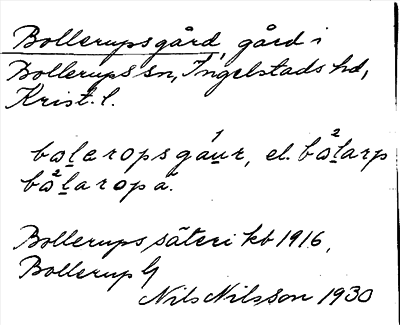 Bollerupsgård, gård i
Bollerups sn, Ingelstads hd,
Krist. l.
bolaropsgáur, el. bo²larp
bo²laropa.
Bollerups säteri kb 1916,
Bollerup G
Nils Nilsson 1930